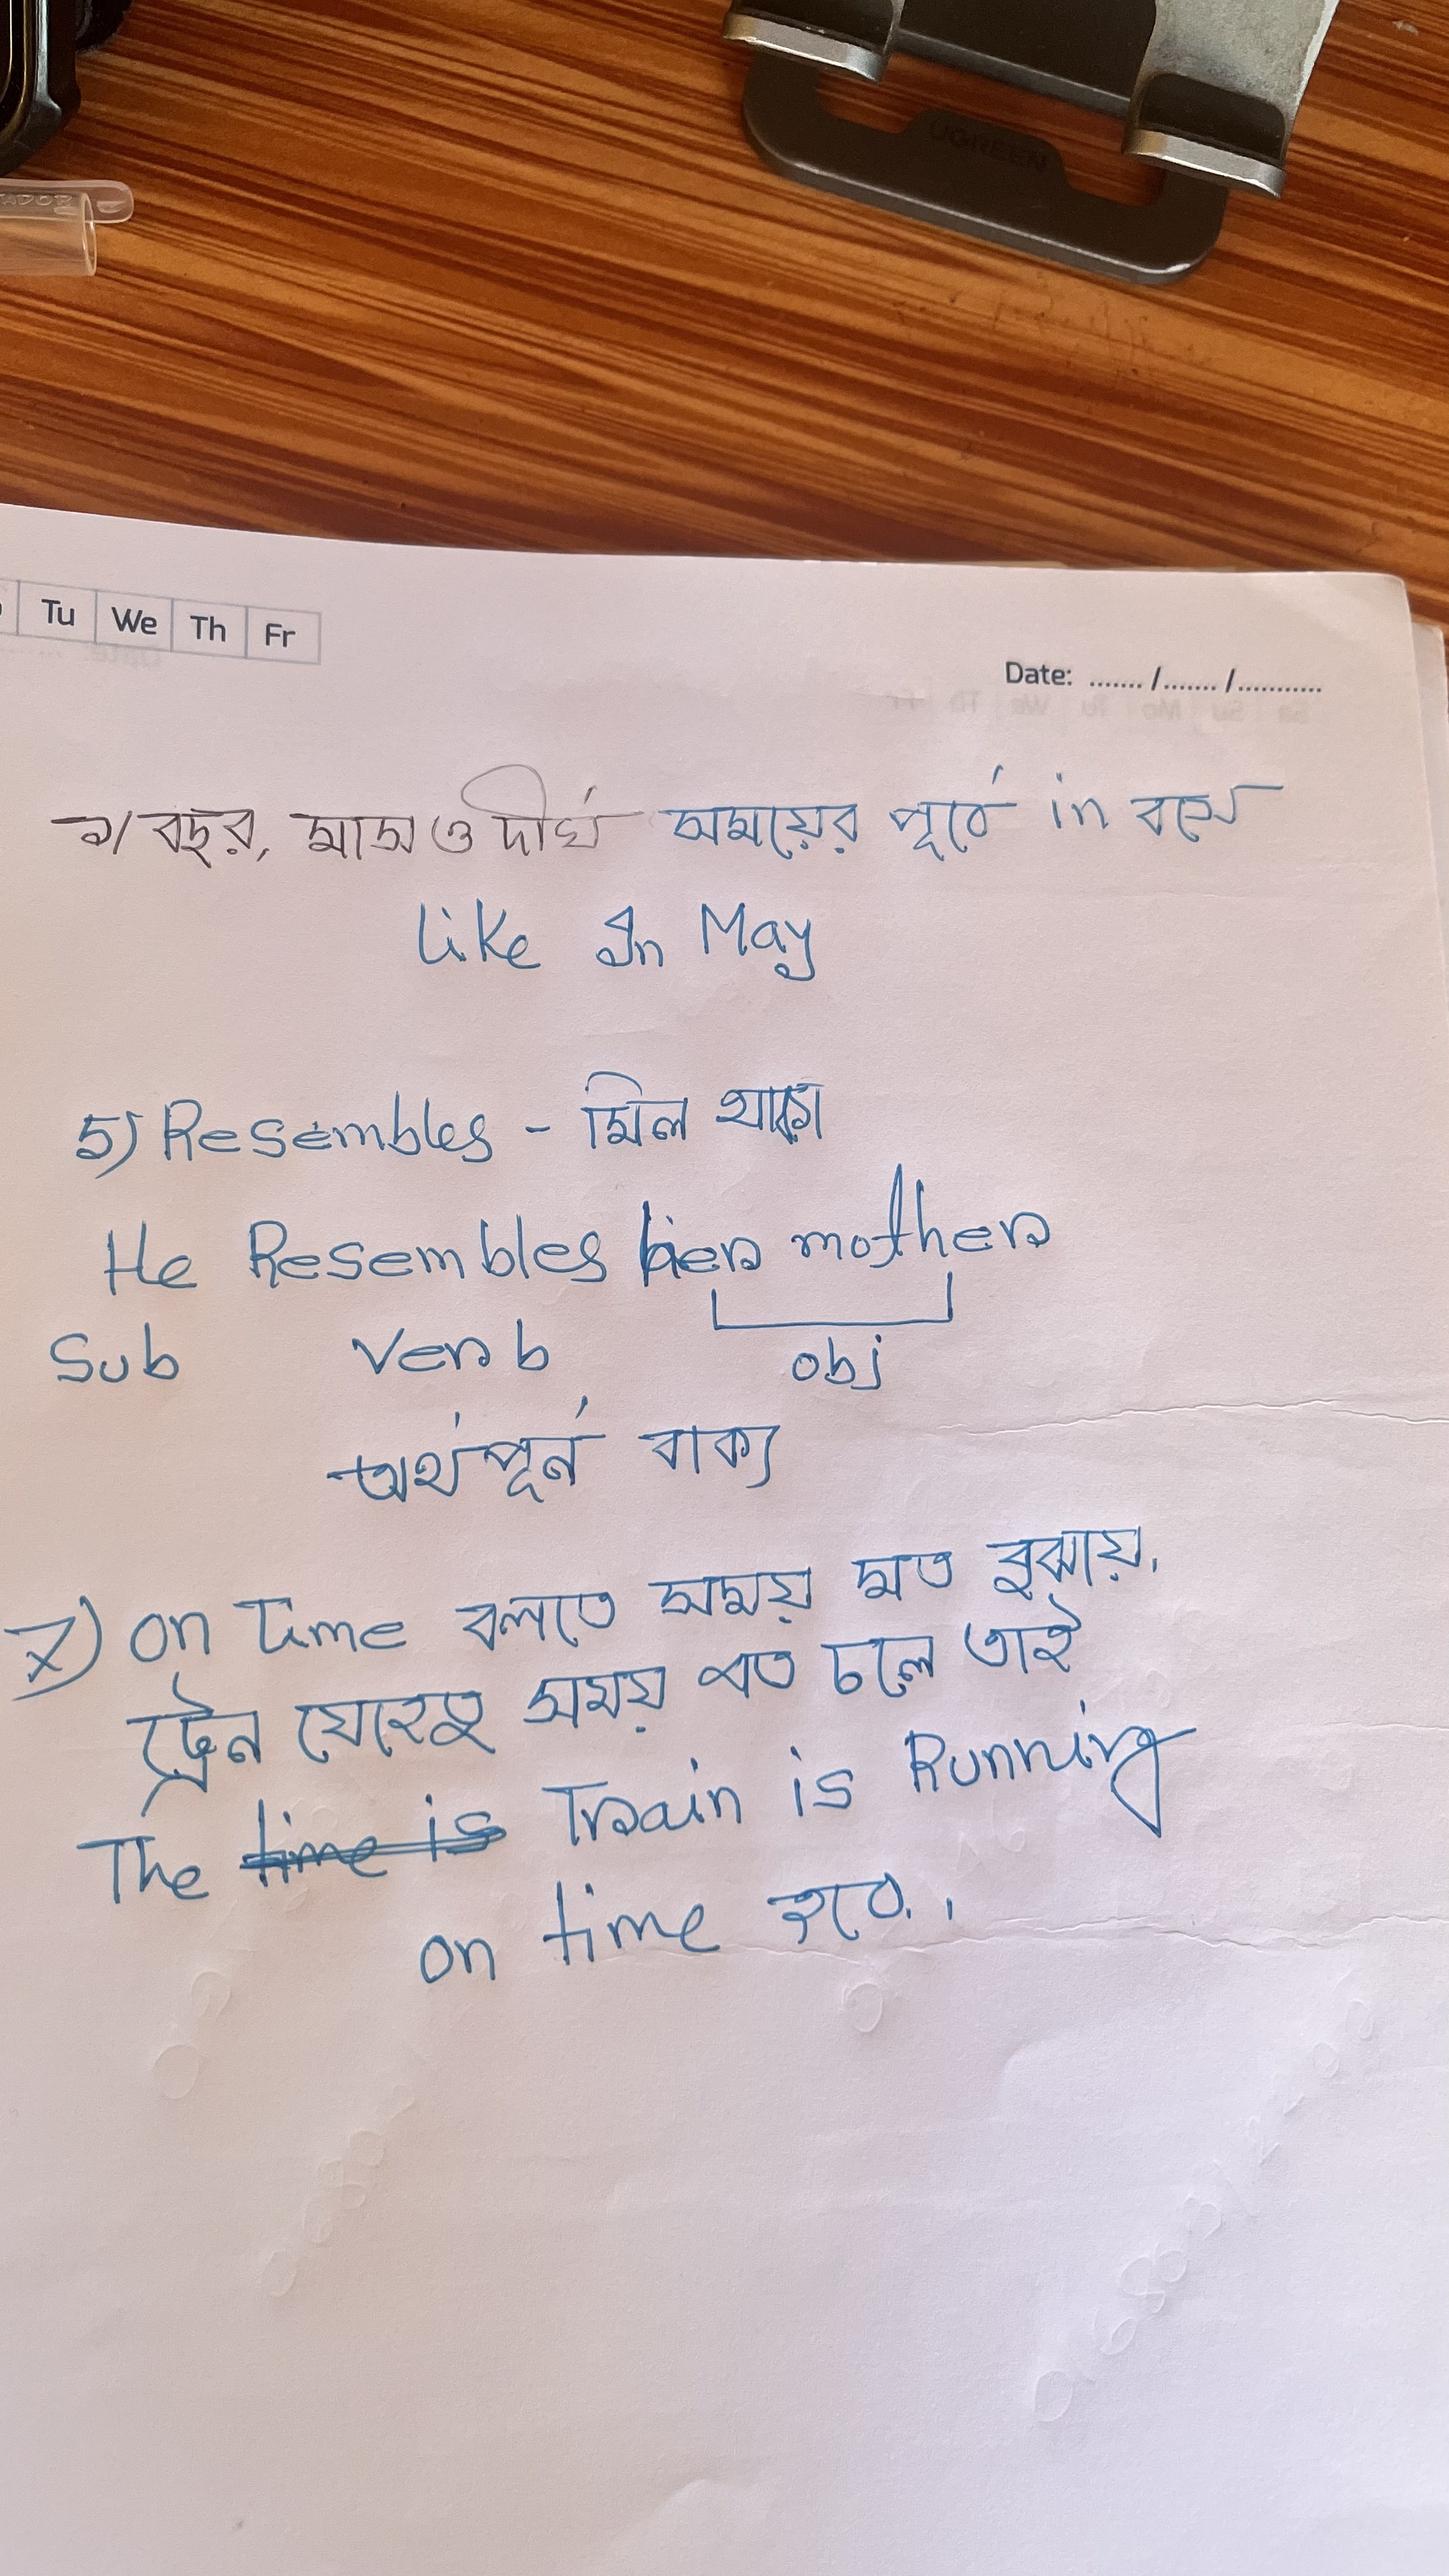 UGREEN
Tu We Th Fr
Date: ....... /....... /...........
১/ বছর, মাস ও দীর্ঘ সময়ের পূর্বে in বসে
Like In May
5) Resembles - মিল থাকা
He Resembles her mother
Sub Verb obj
অর্থপূর্ন বাক্য
7) on Time বলতে সময় মত বুঝায়.
ট্রেন যেহেতু সময় মত চলে তাই
The time is Train is Running
on time হবে.।